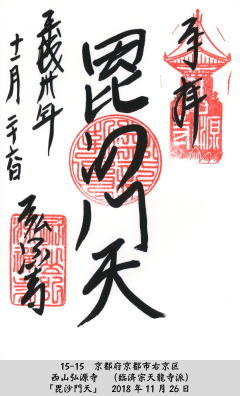 奉拝
毘沙門天
平成卅年
十一月二十六日
弘源寺
15-15　京都府京都市右京区
西山弘源寺　（臨済宗天龍寺派）
「毘沙門天」　2018年11月26日